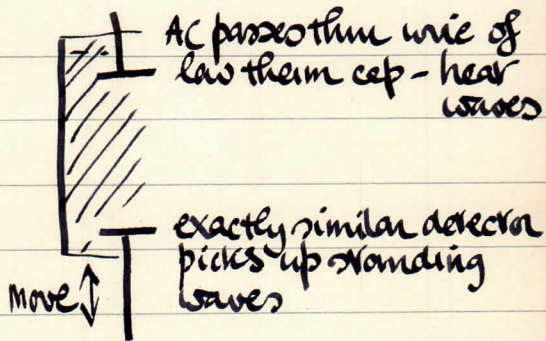 AC passes thru wire of
low therm cap - hear
waves
exactly similar detector
picks up standing
waves
Move